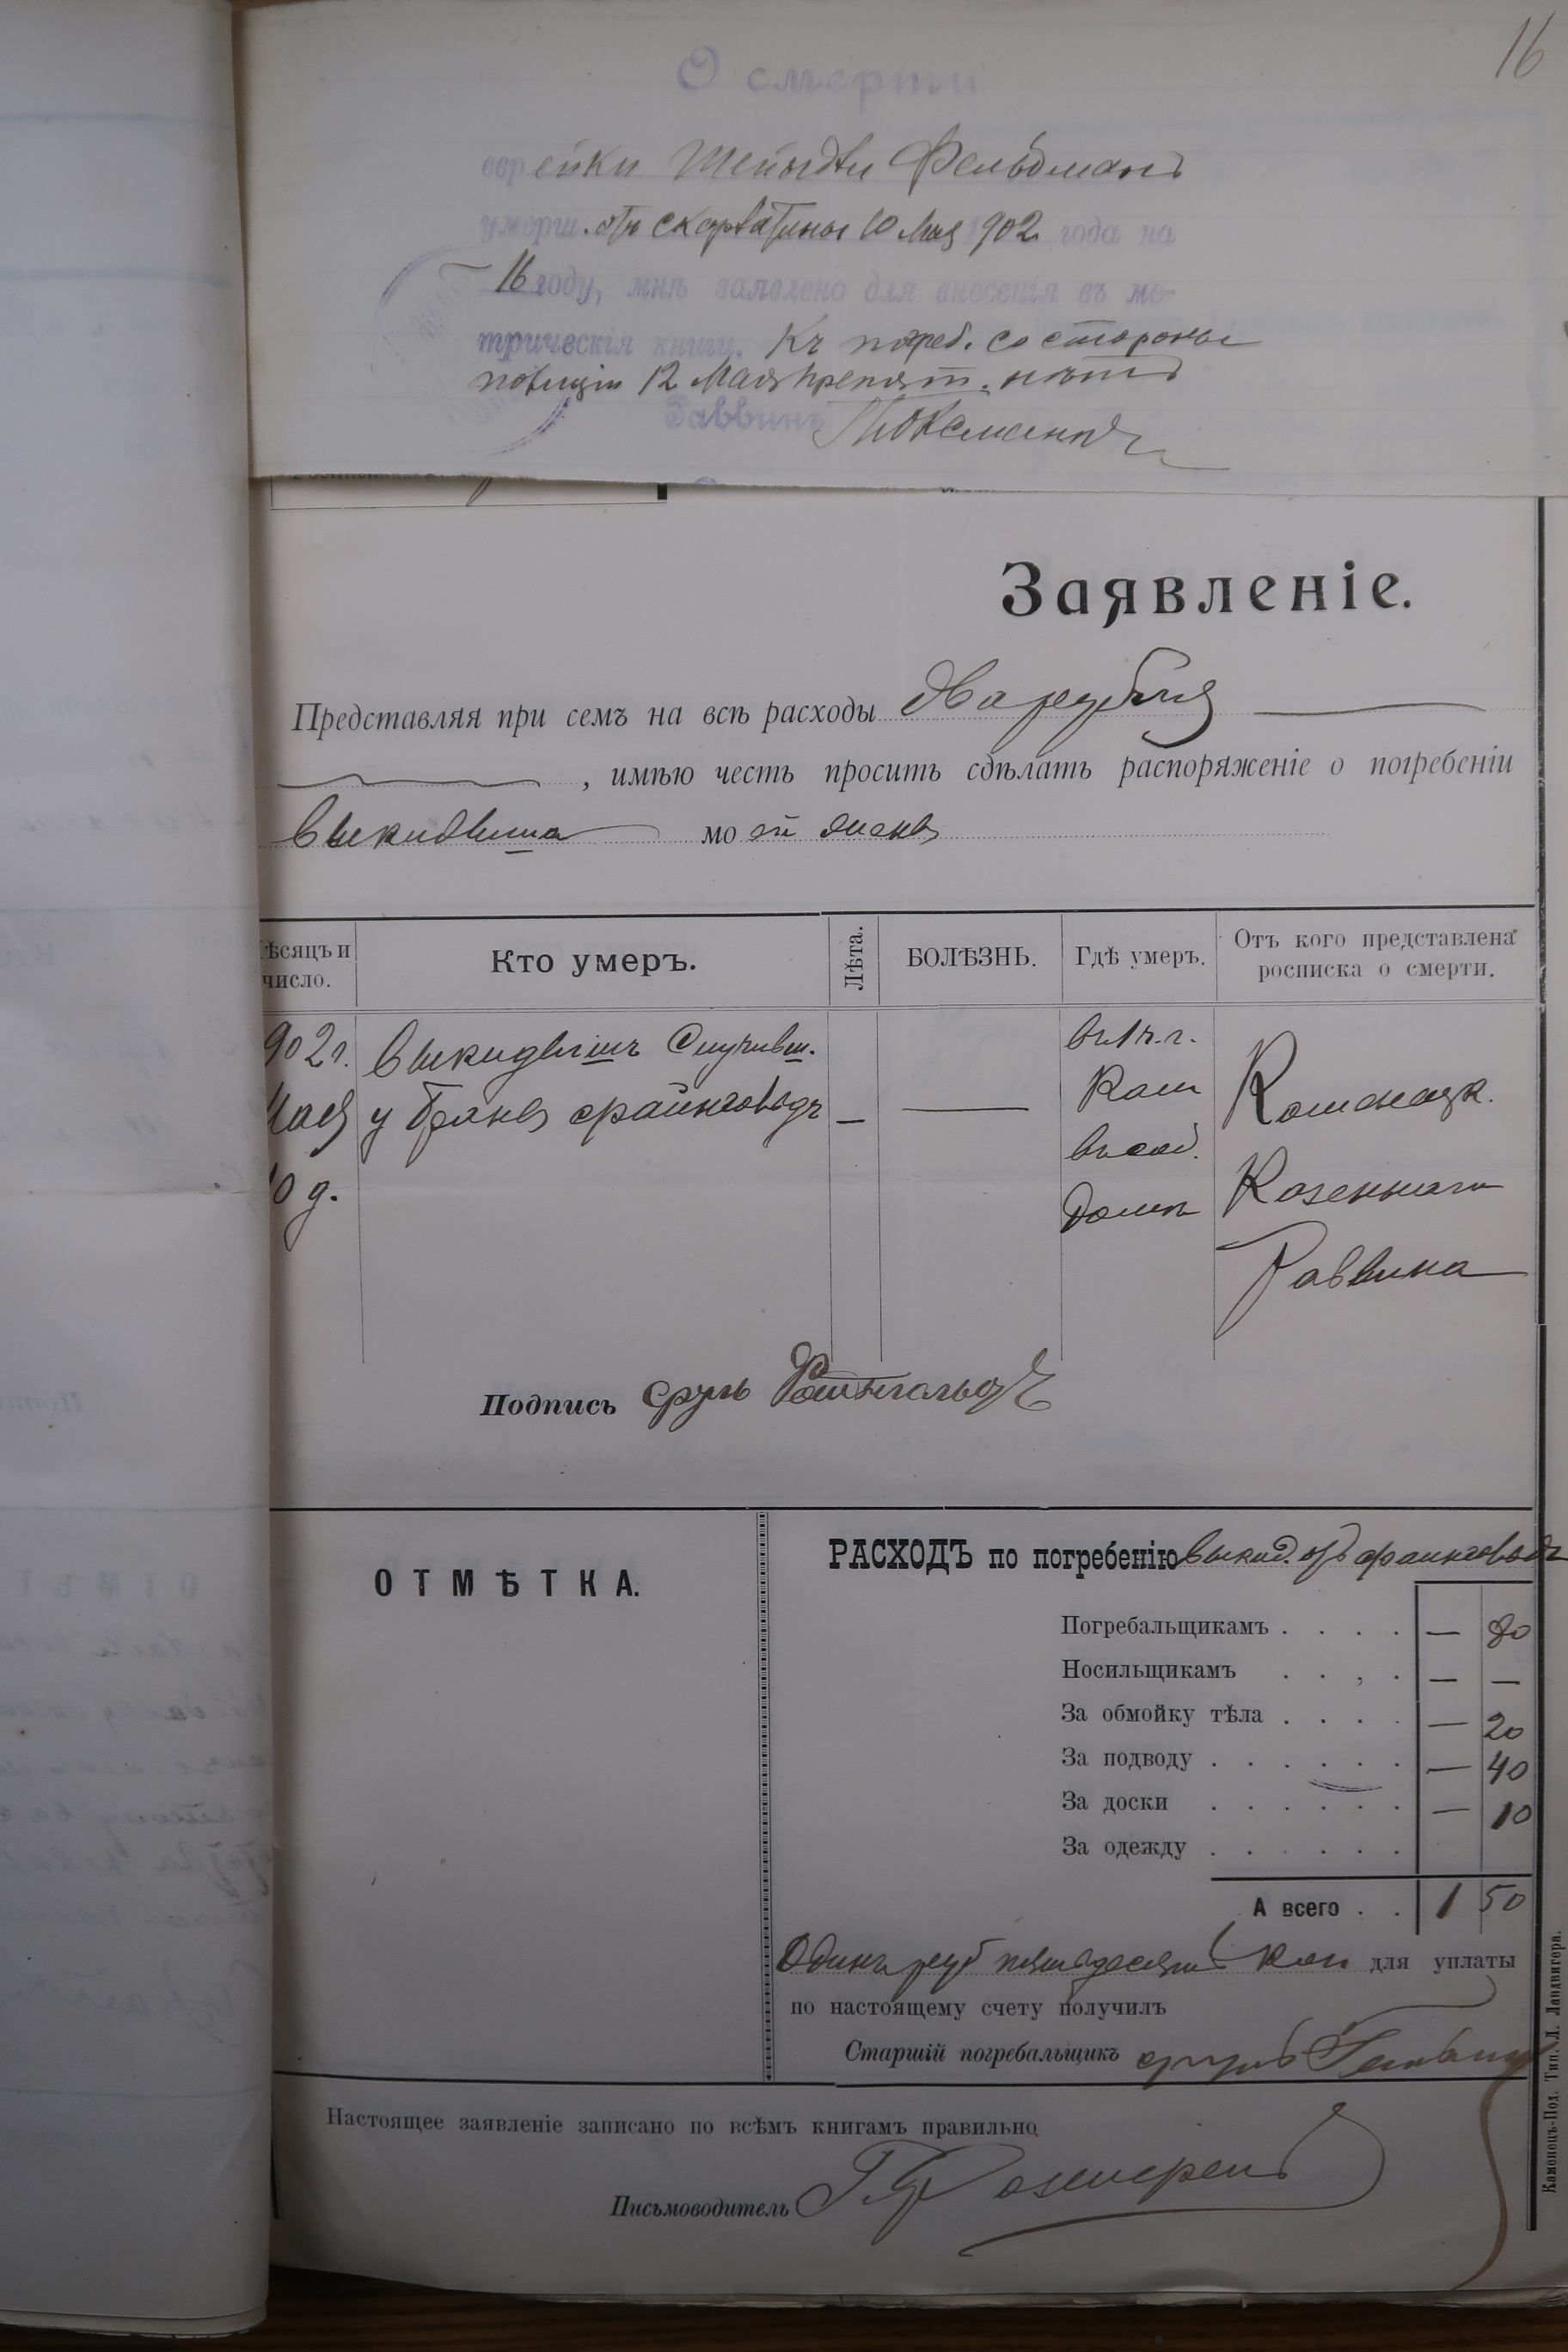 16
О смерти
еврейки Шейндли Фельдманъ
умерш. отъ скарлатины 10 Мая 1902 года на
16 году, мнѣ заявлено для внесенія въ ме-
трическія книгу. Къ погреб. со стороны
полиціи 12 Мая препят. нѣтъ
Раввинъ
Заявленіе.
Представляя при семъ на всѣ расходы два рубля
, имѣю честь просить сдѣлать распоряженіе о погребеніи
выкидыша моей жены
ѣсяцъ и число.
Кто умеръ.
Лѣта.
БОЛѢЗНЬ.
Гдѣ умеръ.
Отъ кого представлена росписка о смерти.
902 г. Мая 10 д.
Выкидышъ случивш.
у Брани Файнгольдъ
—
—
въ г.
Кам
въ соб.
домѣ
Каменецк.
Казеннаго
Раввина
Подпись Сруль
ОТМѢТКА.
РАСХОДЪ по погребенію выкид. отъ Файнгольдъ
Погребальщикамъ . . . . — 80
Носильщикамъ . . , . — —
За обмойку тѣла . . . . — 20
За подводу . . . . . . — 40
За доски . . . . . . — 10
За одежду . . . . . .
А всего . . 1 50
Одинъ руб пятьдесятъ коп для уплаты
по настоящему счету получилъ
Старшій погребальщикъ
Настоящее заявленіе записано по всѣмъ книгамъ правильно
Письмоводитель
Каменецъ-Под. Тип. Л. Ландвигера.